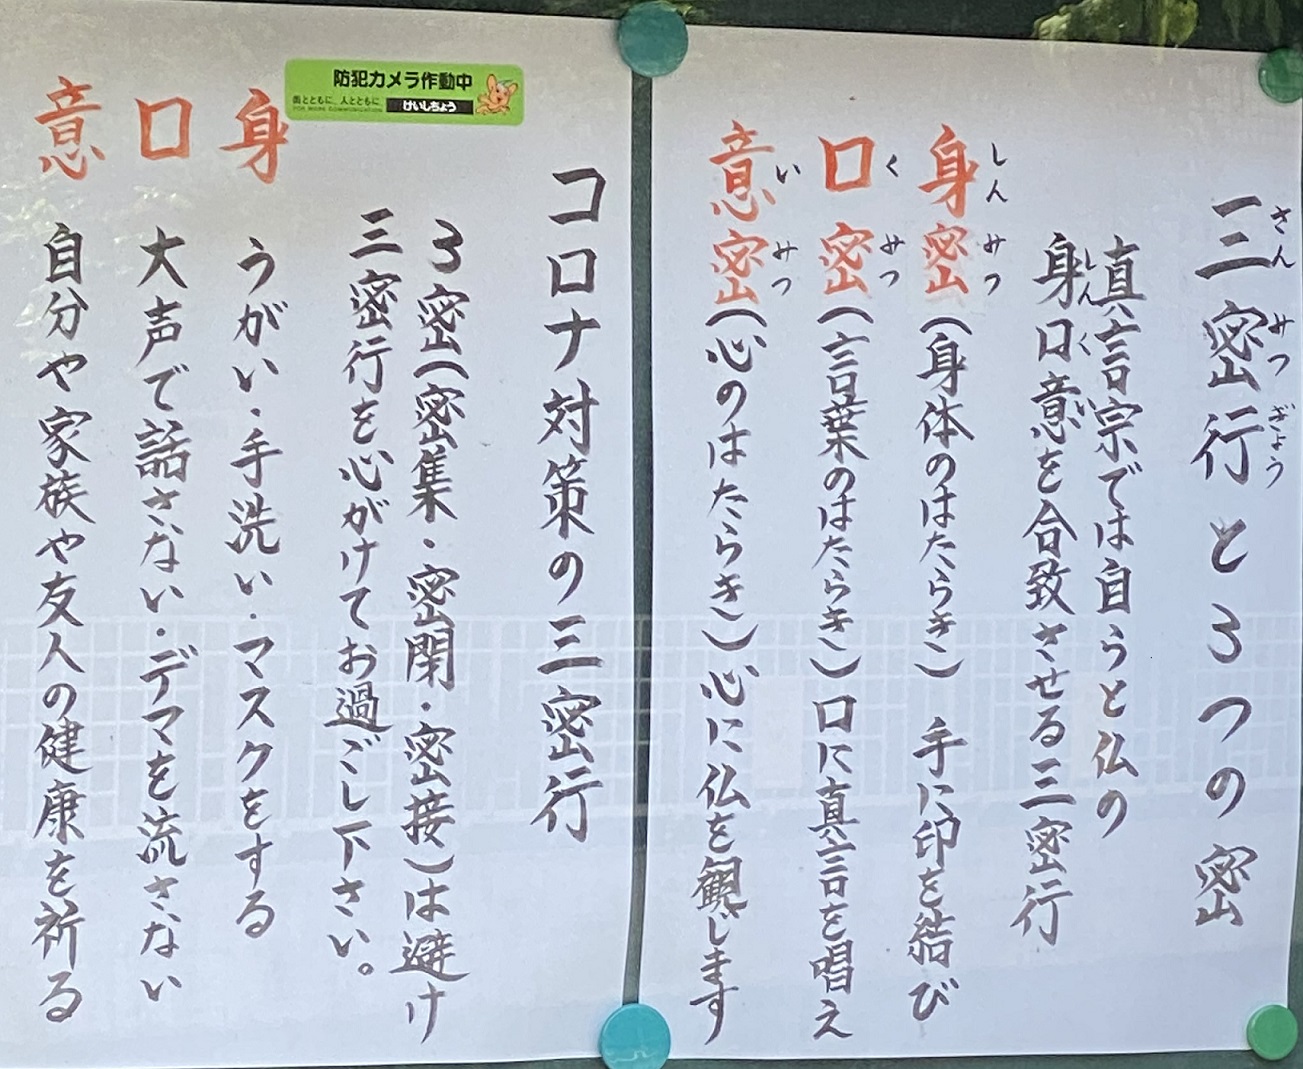 三密行と3つの密
さんみつぎょう
真言宗では自うと仏の
身口意を合致させる三密行
しんくい
身密(身体のはたらき) 手に印を結び
しんみつ
口密(言葉のはたらき)口に真言を唱え
くみつ
意密(心のはたらき)心に仏を観します
いみつ
コロナ対策の三密行
3密(密集・密閉・密接)は避け
三密行を心がけてお過ごし下さい。
身 うがい・手洗い・マスクをする
口 大声で話さない・デマを流さない
意 自分や家族や友人の健康を祈る
防犯カメラ作動中
街とともに、人とともに
FOR MORE COMMUNICATION
けいしちょう